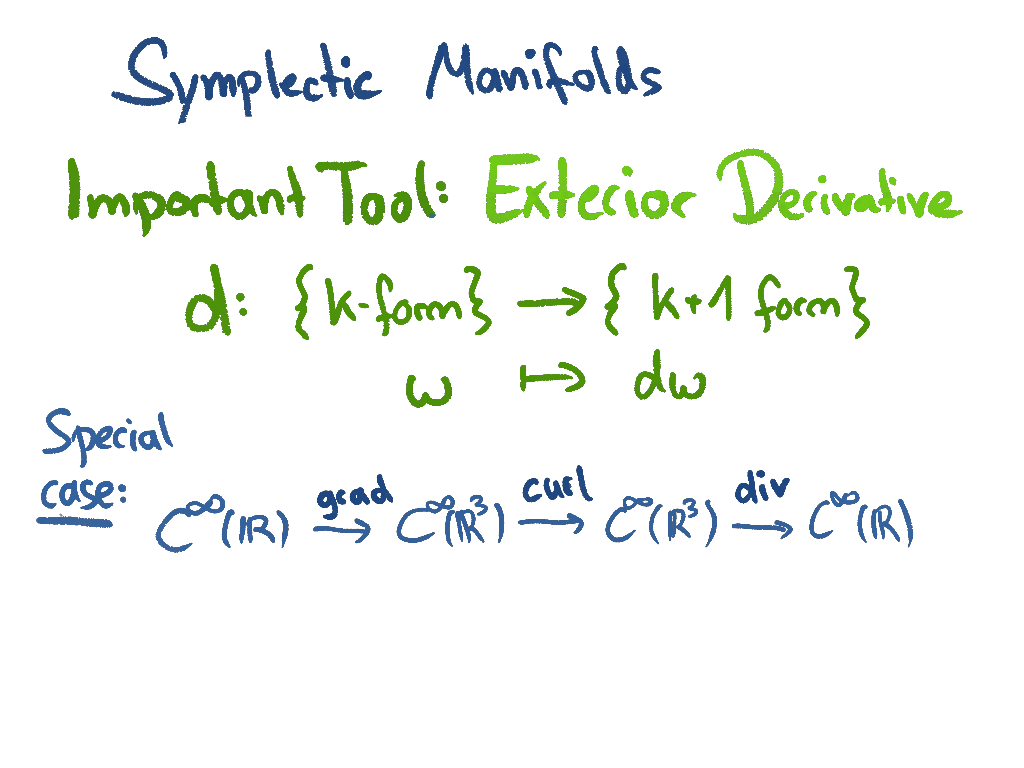 Symplectic Manifolds
Important Tool: Exterior Derivative
d: {k-form} → {k+1 form}
ω ↦ dω
Special
case:
C^∞(ℝ) grad→ C^∞(ℝ³) curl→ C^∞(ℝ³) div→ C^∞(ℝ)